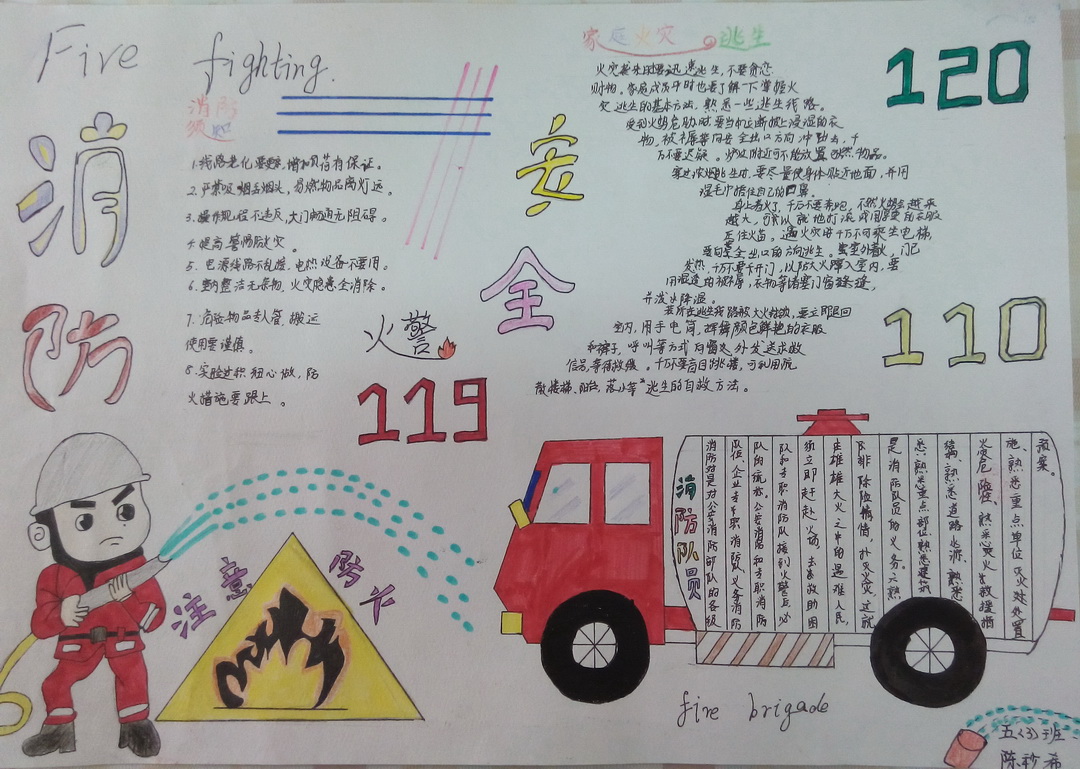 Fire fighting.
消防
安全
消防
须知
1.线路老化要更, 增加负荷有保证。
2.严禁吸烟丢烟头, 易燃物品离灯远。
3.操作规程不违反, 大门畅通无阻碍。
4.提高警惕防火灾。
5.电源线路不乱接, 电热设备不要用。
6.室内整洁无杂物, 火灾隐患全消除。
7.危险物品专人管, 搬运
使用要谨慎。
8.实验过程细心做, 防
火措施要跟上。
火警
119
家庭火灾 逃生
火灾袭来时要迅速逃生, 不要贪恋
财物。家庭成员平时也要了解一下掌握火
灾逃生的基本方法, 熟悉一些逃生线路。
受到火势危胁时要当机立断披上浸湿的衣
物, 被褥等向安全出口方向冲出去, 千
万不要迟疑。炉火附近可不能放置可燃物品。
穿过浓烟逃生时, 要尽量使身体贴近地面, 并用
湿毛巾捂住自己的口鼻。
身上着火了, 千万不要奔跑, 不然火势会越来
越大, 可以就地打滚或用厚重的衣服
压住火苗。遇火灾时千万不可乘坐电梯,
要向安全出口的方向逃生。室外着火, 门已
发热, 千万不要开门, 以防大火蹿入室内, 要
用浸湿的被褥, 衣物等堵塞门窗缝,
并泼水降温。
若所在逃生线路被大火封锁, 要立即退回
室内, 用手电筒, 挥舞颜色鲜艳的衣服
和裤子, 呼叫等方式向窗外发送求救
信号, 等待救援。千万不要盲目跳楼, 可利用疏
散楼梯、阳台、落水等逃生的自救方法。
120
110
注意防火
消防队员
消防员是对公安消防部队的各级
队伍、企业专职消防队、义务消防
队的统称。公安消防和专职消防
队和专职消防队接到火警后必
须立即赶赴火场, 去营救助困
在雄雄大火之中的遇难人民,
及排除险情, 扑灭火灾。这就
是消防队员的义务。六熟
悉:熟悉重点部位, 熟悉建筑
结构, 熟悉道路水源, 熟悉
火灾危险性, 熟悉灭火救援措
施、熟悉重点单位灭火处置
预案。
fire brigade
五(3)班
陈 希